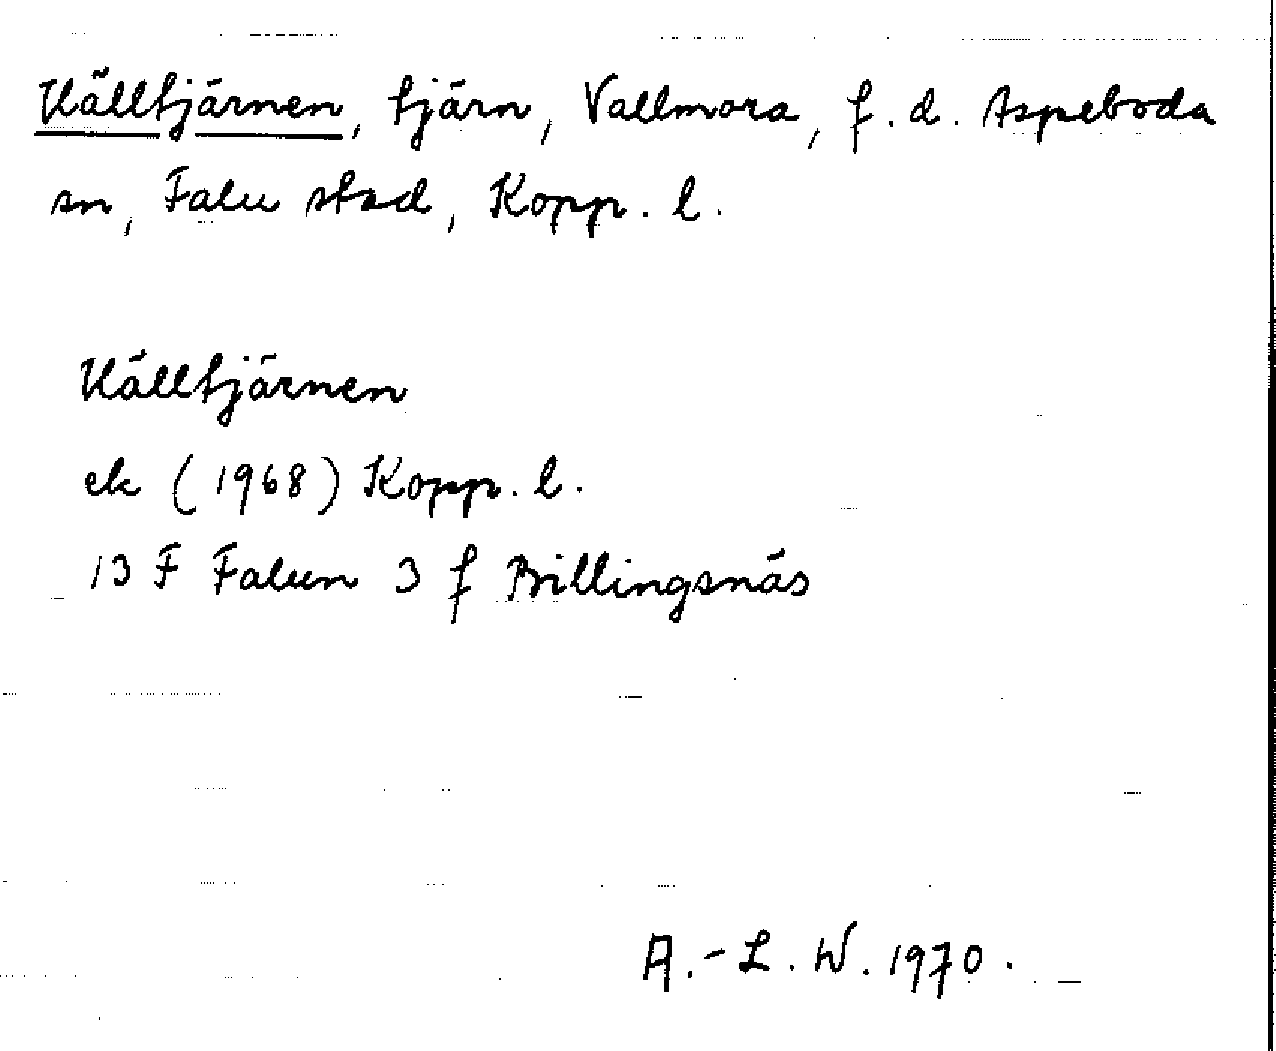 Källtjärnen, tjärn, Vallmora, f. d. Aspeboda
sn, Falu stad, Kopp. l.
Källtjärnen
ek (1968) Kopp. l.
13 F Falun 3 f Billingsnäs
A.-L. W. 1970.